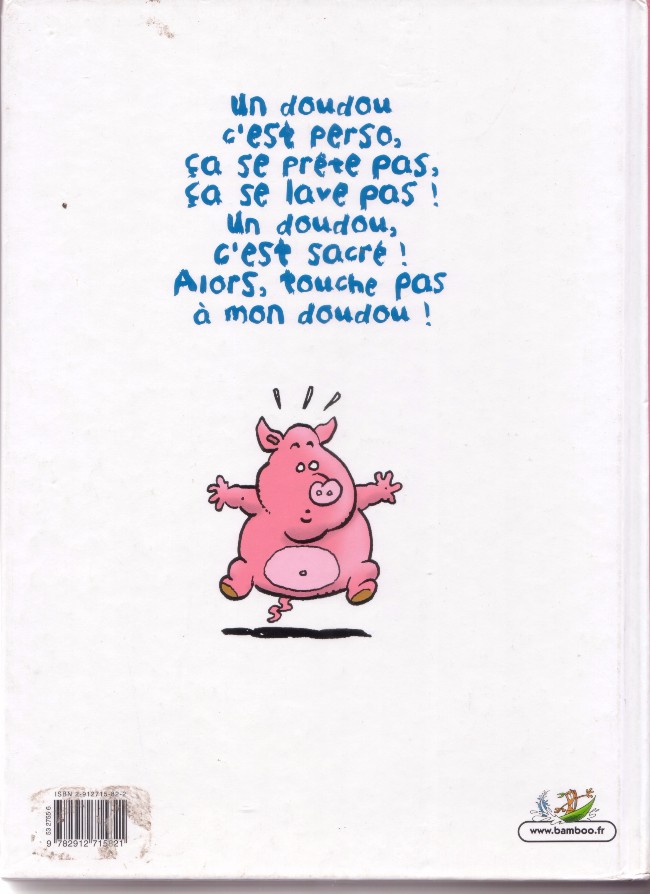 Un doudou
c'est perso,
ça se prête pas,
ça se lave pas !
Un doudou,
c'est sacré !
Alors, touche pas
à mon doudou !
ISBN 2-912715-82-2
53 2765 6
9 782912 715821
www.bamboo.fr